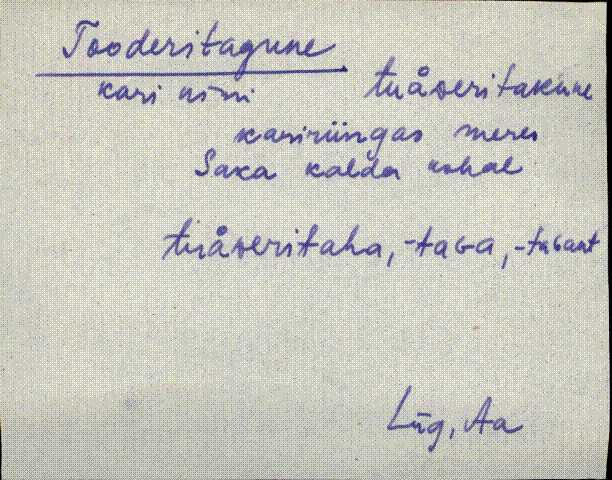 Tooderitagune
kari nimi tuåderitakune
kariringas meres
Saka kalda kohal
tuåderitaha, -taGa, -taGant
Lüg, Aa